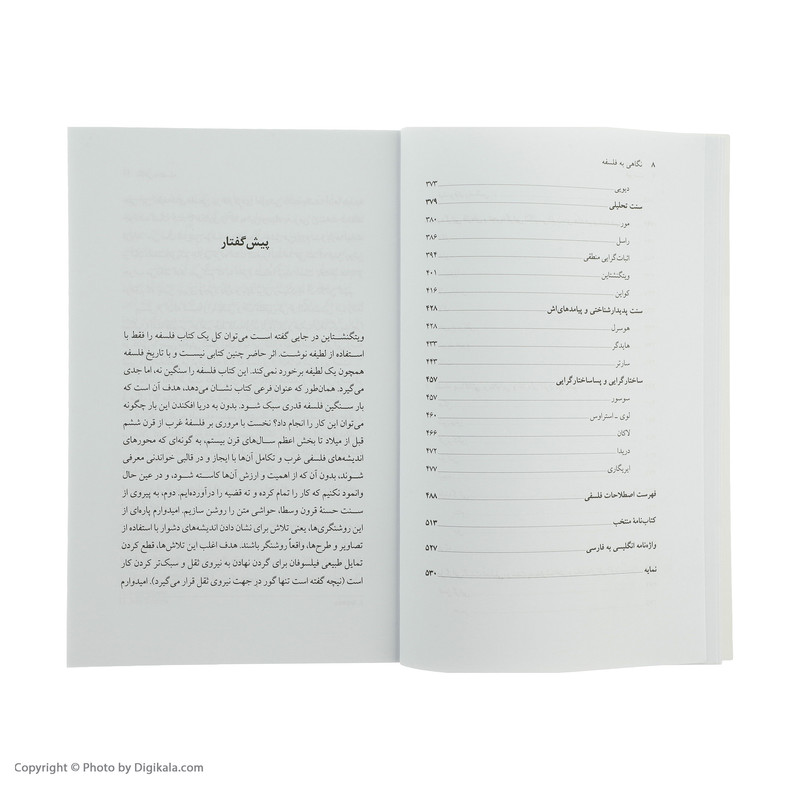 ۸ نگاهی به فلسفه
دیویی ۳۷۳
سنت تحلیلی ۳۷۹
مور ۳۸۰
راسل ۳۸۶
اثبات‌گرایی منطقی ۳۹۴
ویتگنشتاین ۴۰۱
کواین ۴۱۶
سنت پدیدارشناختی و پیامدهای‌اش ۴۲۸
هوسرل ۴۲۸
هایدگر ۴۳۳
سارتر ۴۴۳
ساختارگرایی و پساساختارگرایی ۴۵۷
سوسور ۴۵۷
لوی ـ استراوس ۴۶۰
لاکان ۴۶۶
دریدا ۴۷۲
ایریگاری ۴۷۷
فهرست اصطلاحات فلسفی ۴۸۸
کتاب‌نامهٔ منتخب ۵۱۳
واژه‌نامه انگلیسی به فارسی ۵۲۷
نمایه ۵۳۰
پیش‌گفتار
ویتگنشتاین در جایی گفته است می‌توان کل یک کتاب فلسفه را فقط با
استفاده از لطیفه نوشت. اثر حاضر چنین کتابی نیست و با تاریخ فلسفه
همچون یک لطیفه برخورد نمی‌کند. این کتاب فلسفه را سنگین نه، اما جدی
می‌گیرد. همان‌طور که عنوان فرعی کتاب نشان می‌دهد، هدف آن است که
بار سنگین فلسفه قدری سبک شود. بدون به دریا افکندن این بار چگونه
می‌توان این کار را انجام داد؟ نخست با مروری بر فلسفهٔ غرب از قرن ششم
قبل از میلاد تا بخش اعظم سال‌های قرن بیستم، به گونه‌ای که محورهای
اندیشه‌های فلسفی غرب و تکامل آن‌ها با ایجاز و در قالبی خواندنی معرفی
شوند، بدون آن که از اهمیت و ارزش آن‌ها کاسته شود، و در عین حال
وانمود نکنیم که کار را تمام کرده و ته قضیه را درآورده‌ایم. دوم، به پیروی از
سنت حسنهٔ قرون وسطا، حواشی متن را روشن سازیم. امیدوارم پاره‌ای از
این روشنگری‌ها، یعنی تلاش برای نشان دادن اندیشه‌های دشوار با استفاده از
تصاویر و طرح‌ها، واقعاً روشنگر باشند. هدف اغلب این تلاش‌ها، قطع کردن
تمایل طبیعی فیلسوفان برای گردن نهادن به نیروی ثقل و سبک‌تر کردن کار
است (نیچه گفته است تنها گور در جهت نیروی ثقل قرار می‌گیرد). امیدوارم
Copyright © Photo by Digikala.com